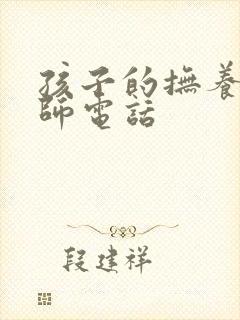 孩子的撫養
師電話
段建祥